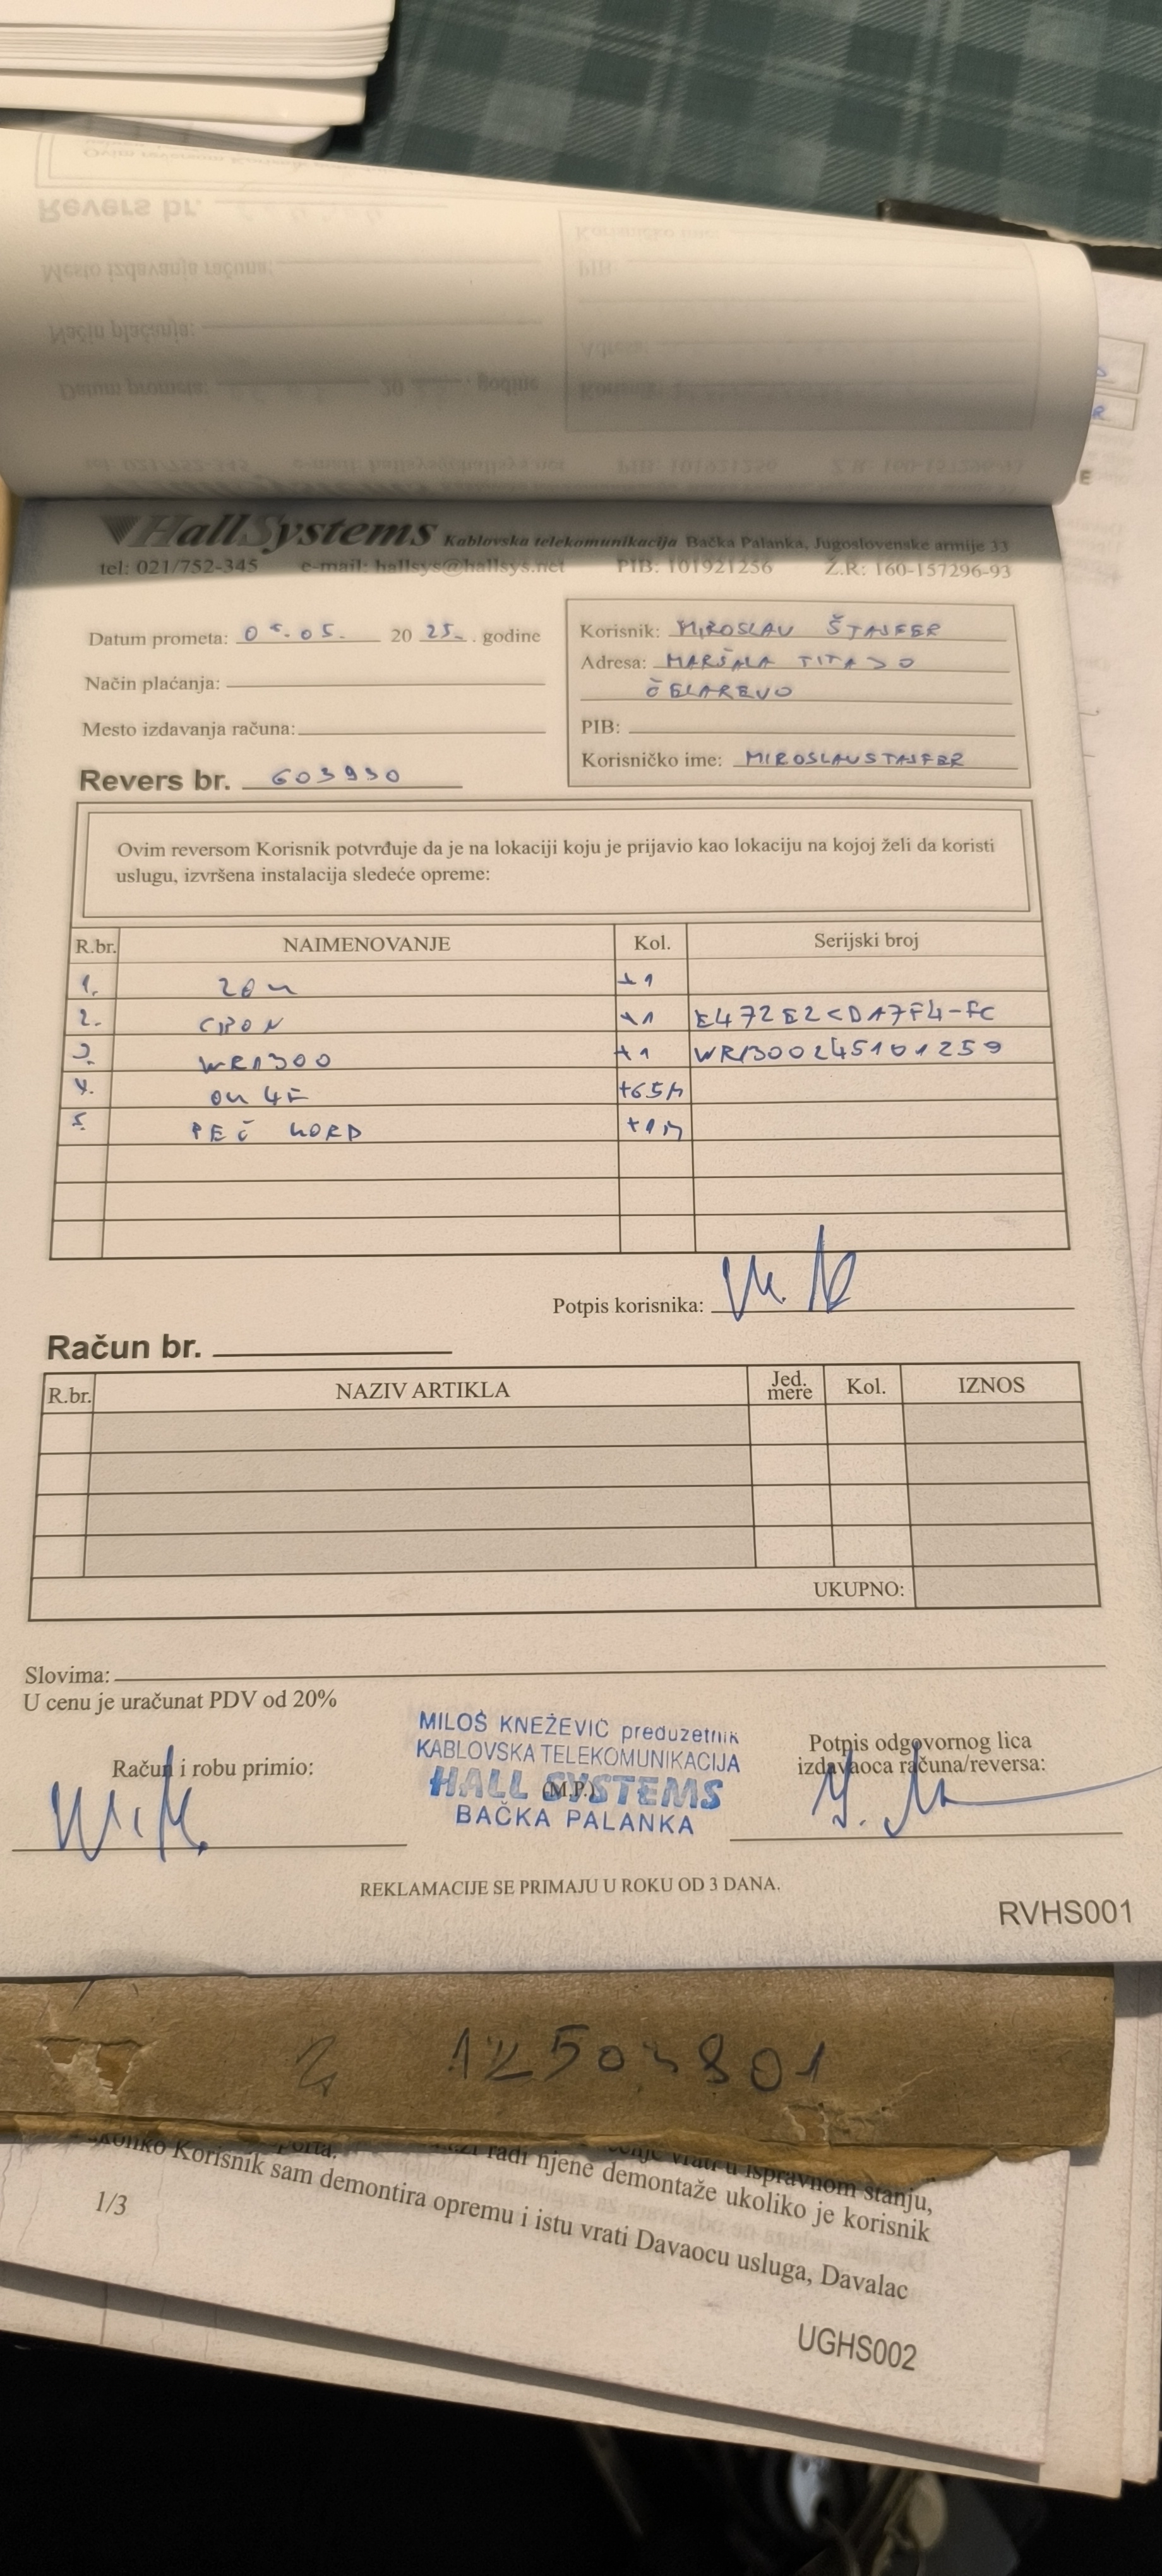 HallSystems Kablovska telekomunikacija Bačka Palanka, Jugoslovenske armije 33
tel: 021/752-345 e-mail: hallsys@hallsys.net PIB: 101921256 Ž.R: 160-157296-93
Datum prometa: 05. 20 25. godine
Način plaćanja:
Mesto izdavanja računa:
Revers br. 603930
Korisnik: MIROSLAV ŠTAJFER
Adresa: MARŠALA TITA 30
ČELAREVO
PIB:
Korisničko ime: MIROSLAVSTAJFER
Ovim reversom Korisnik potvrđuje da je na lokaciji koju je prijavio kao lokaciju na kojoj želi da koristi
uslugu, izvršena instalacija sledeće opreme:
R.br. NAIMENOVANJE Kol. Serijski broj
1. +1
2. GPON +1 E472E2CDA7F4-FC
3. WR1300 +1 WR1300245101259
4. +65M
5. PEČ KORD +1M
Potpis korisnika:
Račun br.
R.br. NAZIV ARTIKLA Jed. mere Kol. IZNOS
UKUPNO:
Slovima:
U cenu je uračunat PDV od 20%
Račun i robu primio:
MILOŠ KNEŽEVIĆ preduzetnik
KABLOVSKA TELEKOMUNIKACIJA
HALL SYSTEMS
(M.P.)
BAČKA PALANKA
Potpis odgovornog lica
izdavaoca računa/reversa:
REKLAMACIJE SE PRIMAJU U ROKU OD 3 DANA.
RVHS001
radi njene demontaže ukoliko je korisnik
vrati u ispravnom stanju,
Korisnik sam demontira opremu i istu vrati Davaocu usluga, Davalac
1/3
UGHS002